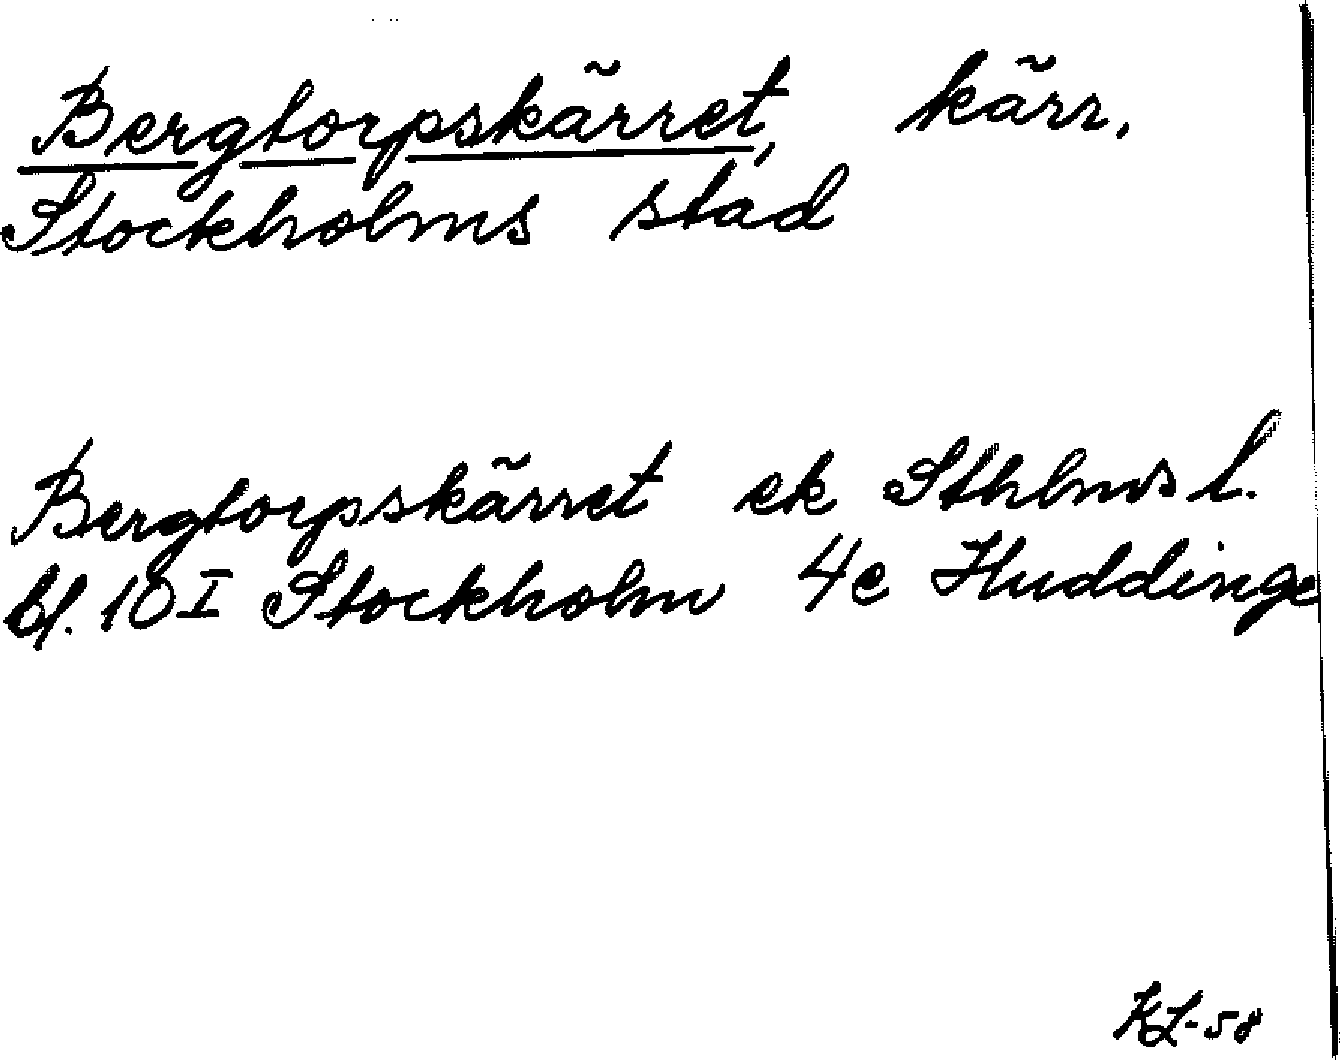 Bergtorpskärret, kärr,
Stockholms stad
Bergtorpskärret ek Sthlms l.
bl. 10 I Stockholm 4e Huddinge
KL-58